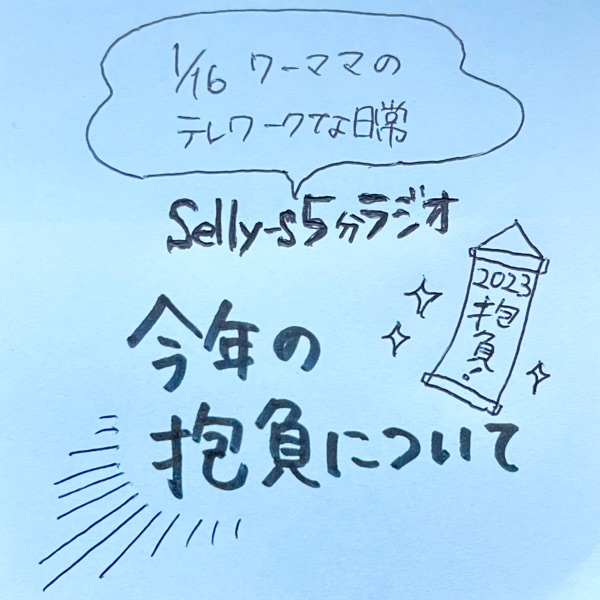 1/16 ワーママの
テレワークな日常
Selly-s 5分ラジオ
2023
抱負!
今年の
抱負について